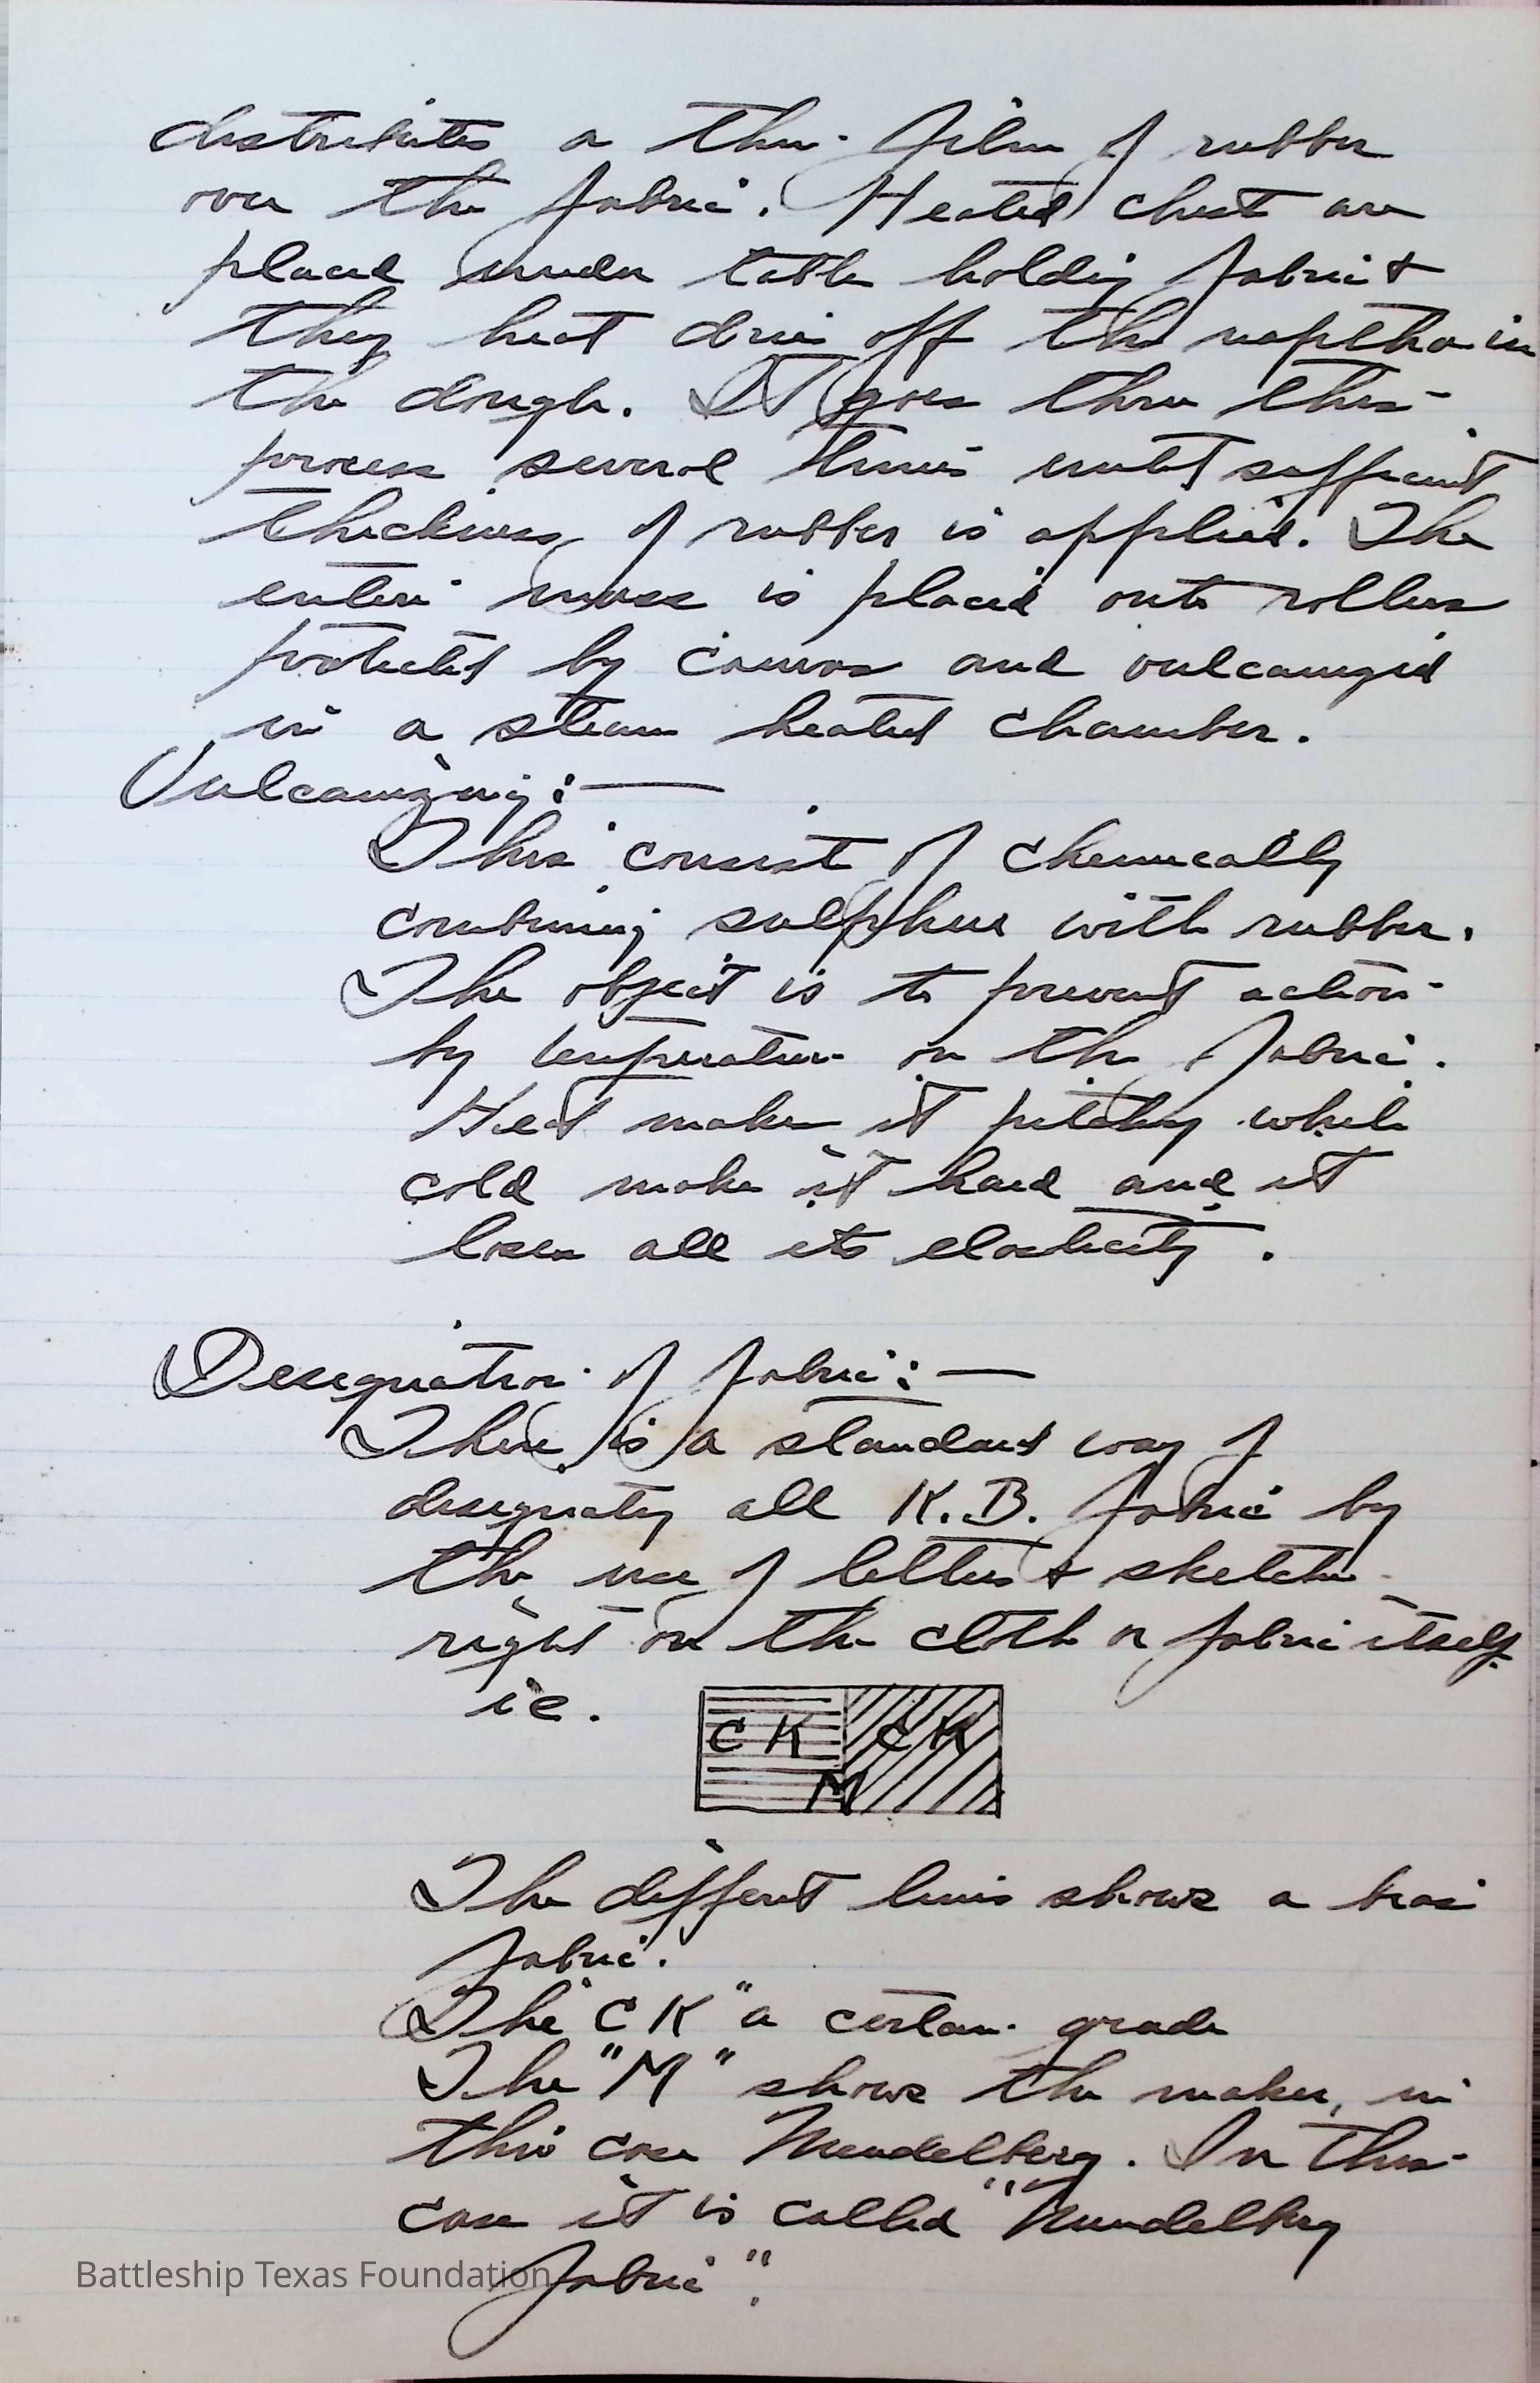 distributes a thin film of rubber
over the fabric. Heated chest are
placed under table holding fabric &
they heat drive off the naptha in
the dough. It goes thru this
process several times until sufficient
thickness of rubber is applied. The
entire mass is placed onto rollers
protected by canvas and vulcanized
in a steam heated chamber.
Vulcanizing:—
This consist of chemically
combining sulphur with rubber.
The object is to prevent action
by temperature on the fabric.
Heat makes it pitchy while
cold make it hard and it
loses all its elasticity.
Designation of fabric:—
There is a standard way of
designating all K.B. fabric by
the use of letters & sketch
right on the cloth or fabric itself
ie.
CK CK
M
The different lines shows a bias
fabric.
The "CK" a certain grade
The "M" shows the maker, in
this case Mendelberg. In this
case it is called "Mendelberg
fabric".
Battleship Texas Foundation